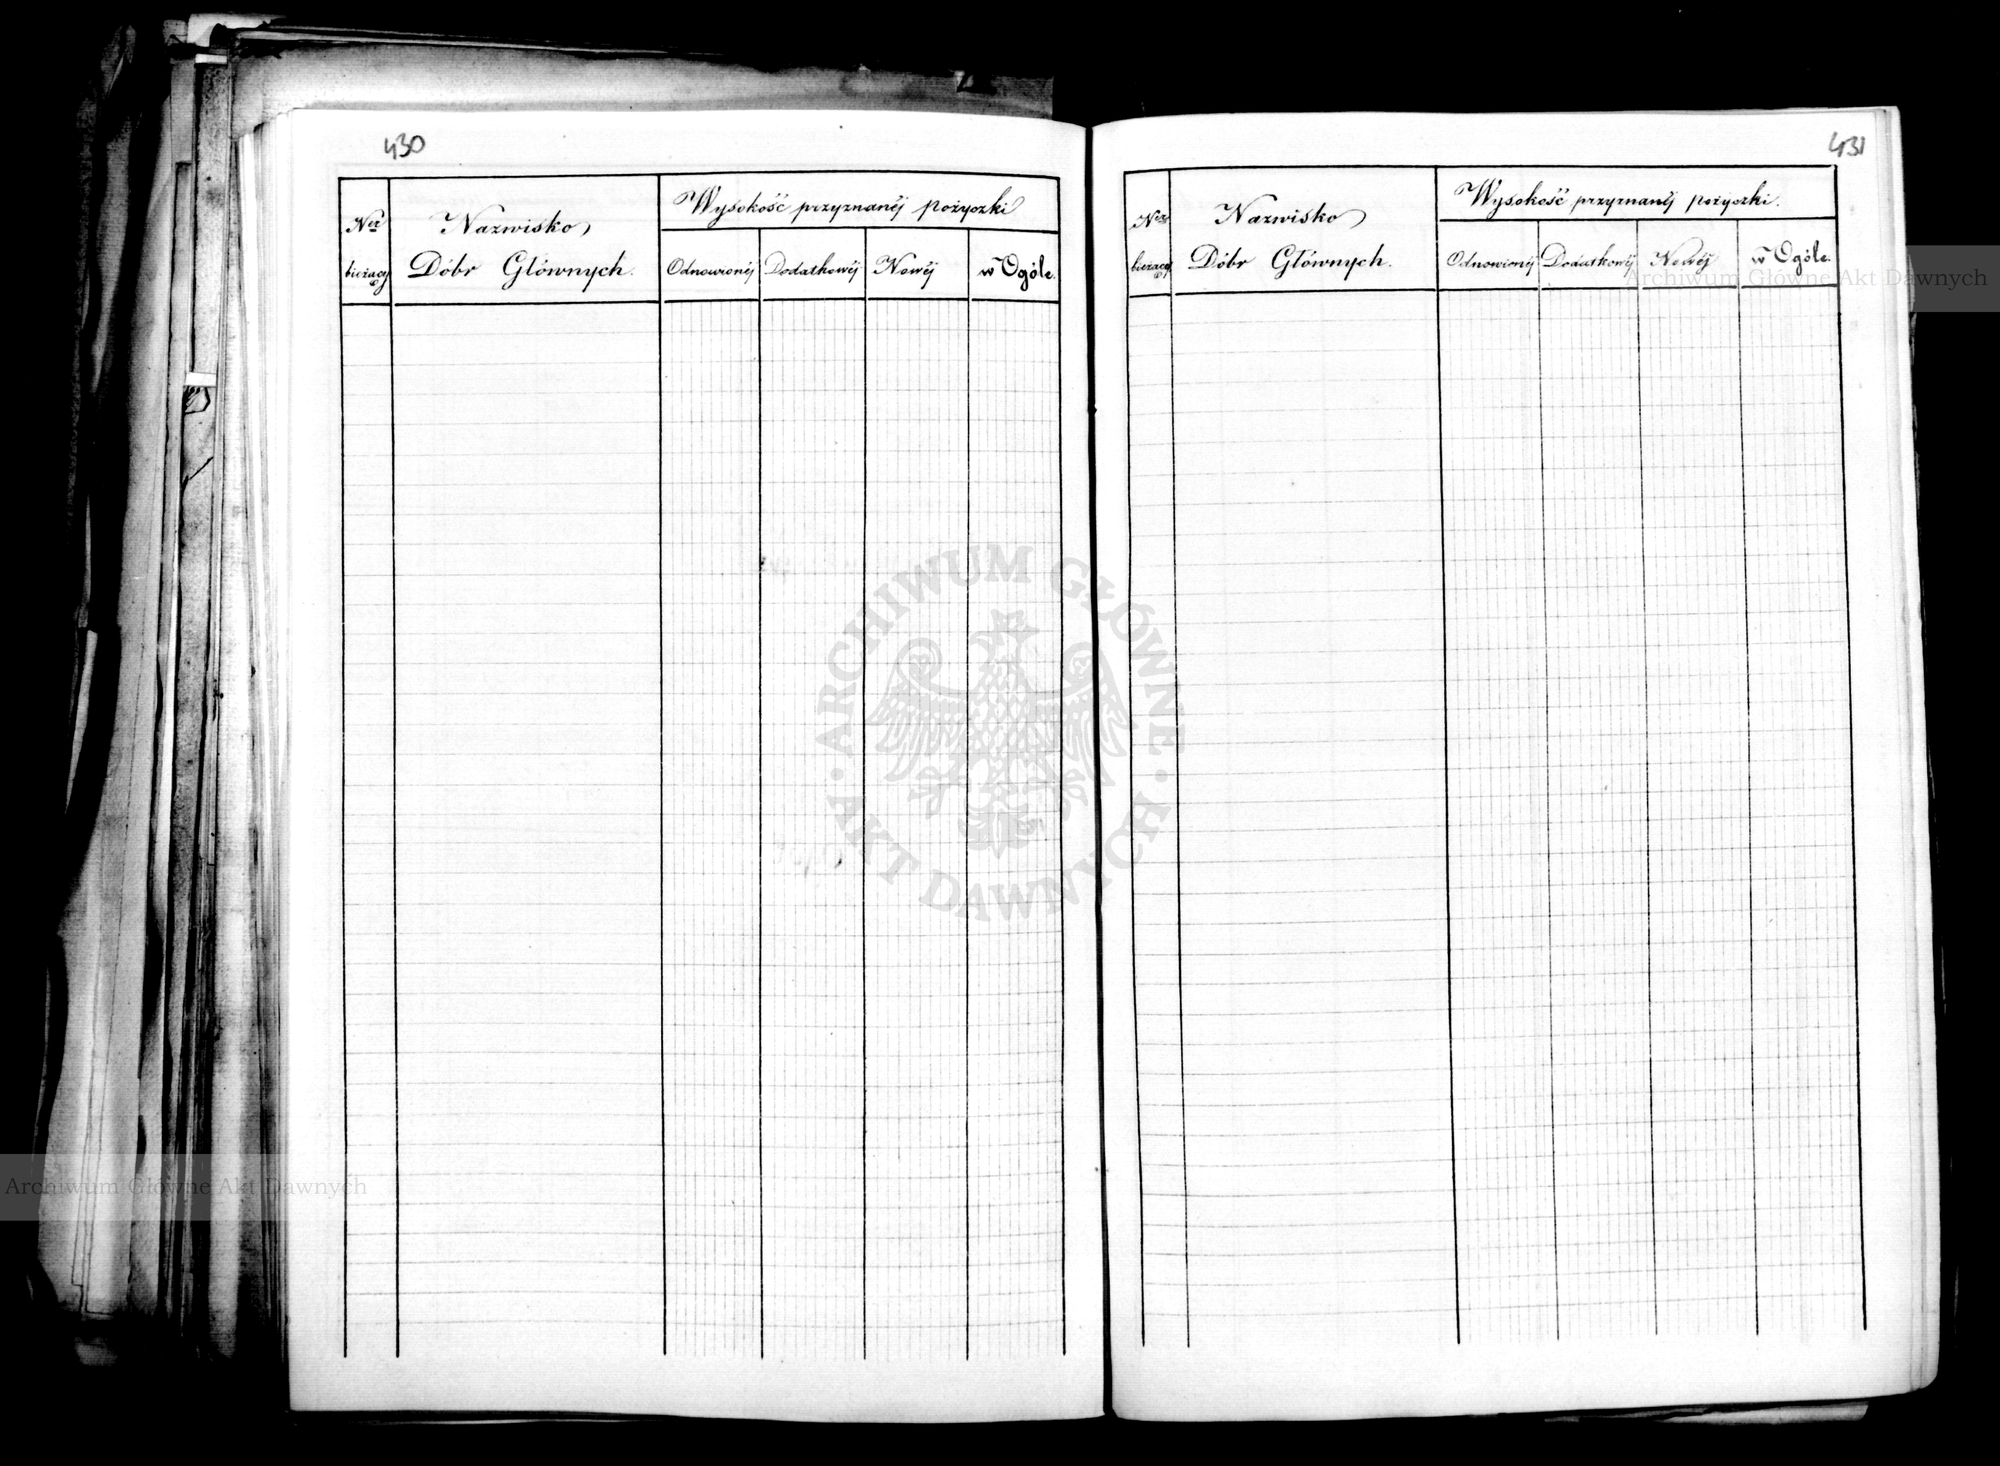 430
Wysokość przyznanéj pożyczki
Ner Nazwisko
bieżący Dóbr Głównych. Odnowionéj Dodatkowéj Nowéj w Ogóle.
431
Wysokość przyznanéj pożyczki.
Ner Nazwisko
bieżący Dóbr Głównych. Odnowionéj Dodatkowéj Nowéj w Ogóle.
Archiwum Główne Akt Dawnych
ARCHIWUM GŁÓWNE · AKT DAWNYCH ·
Archiwum Główne Akt Dawnych